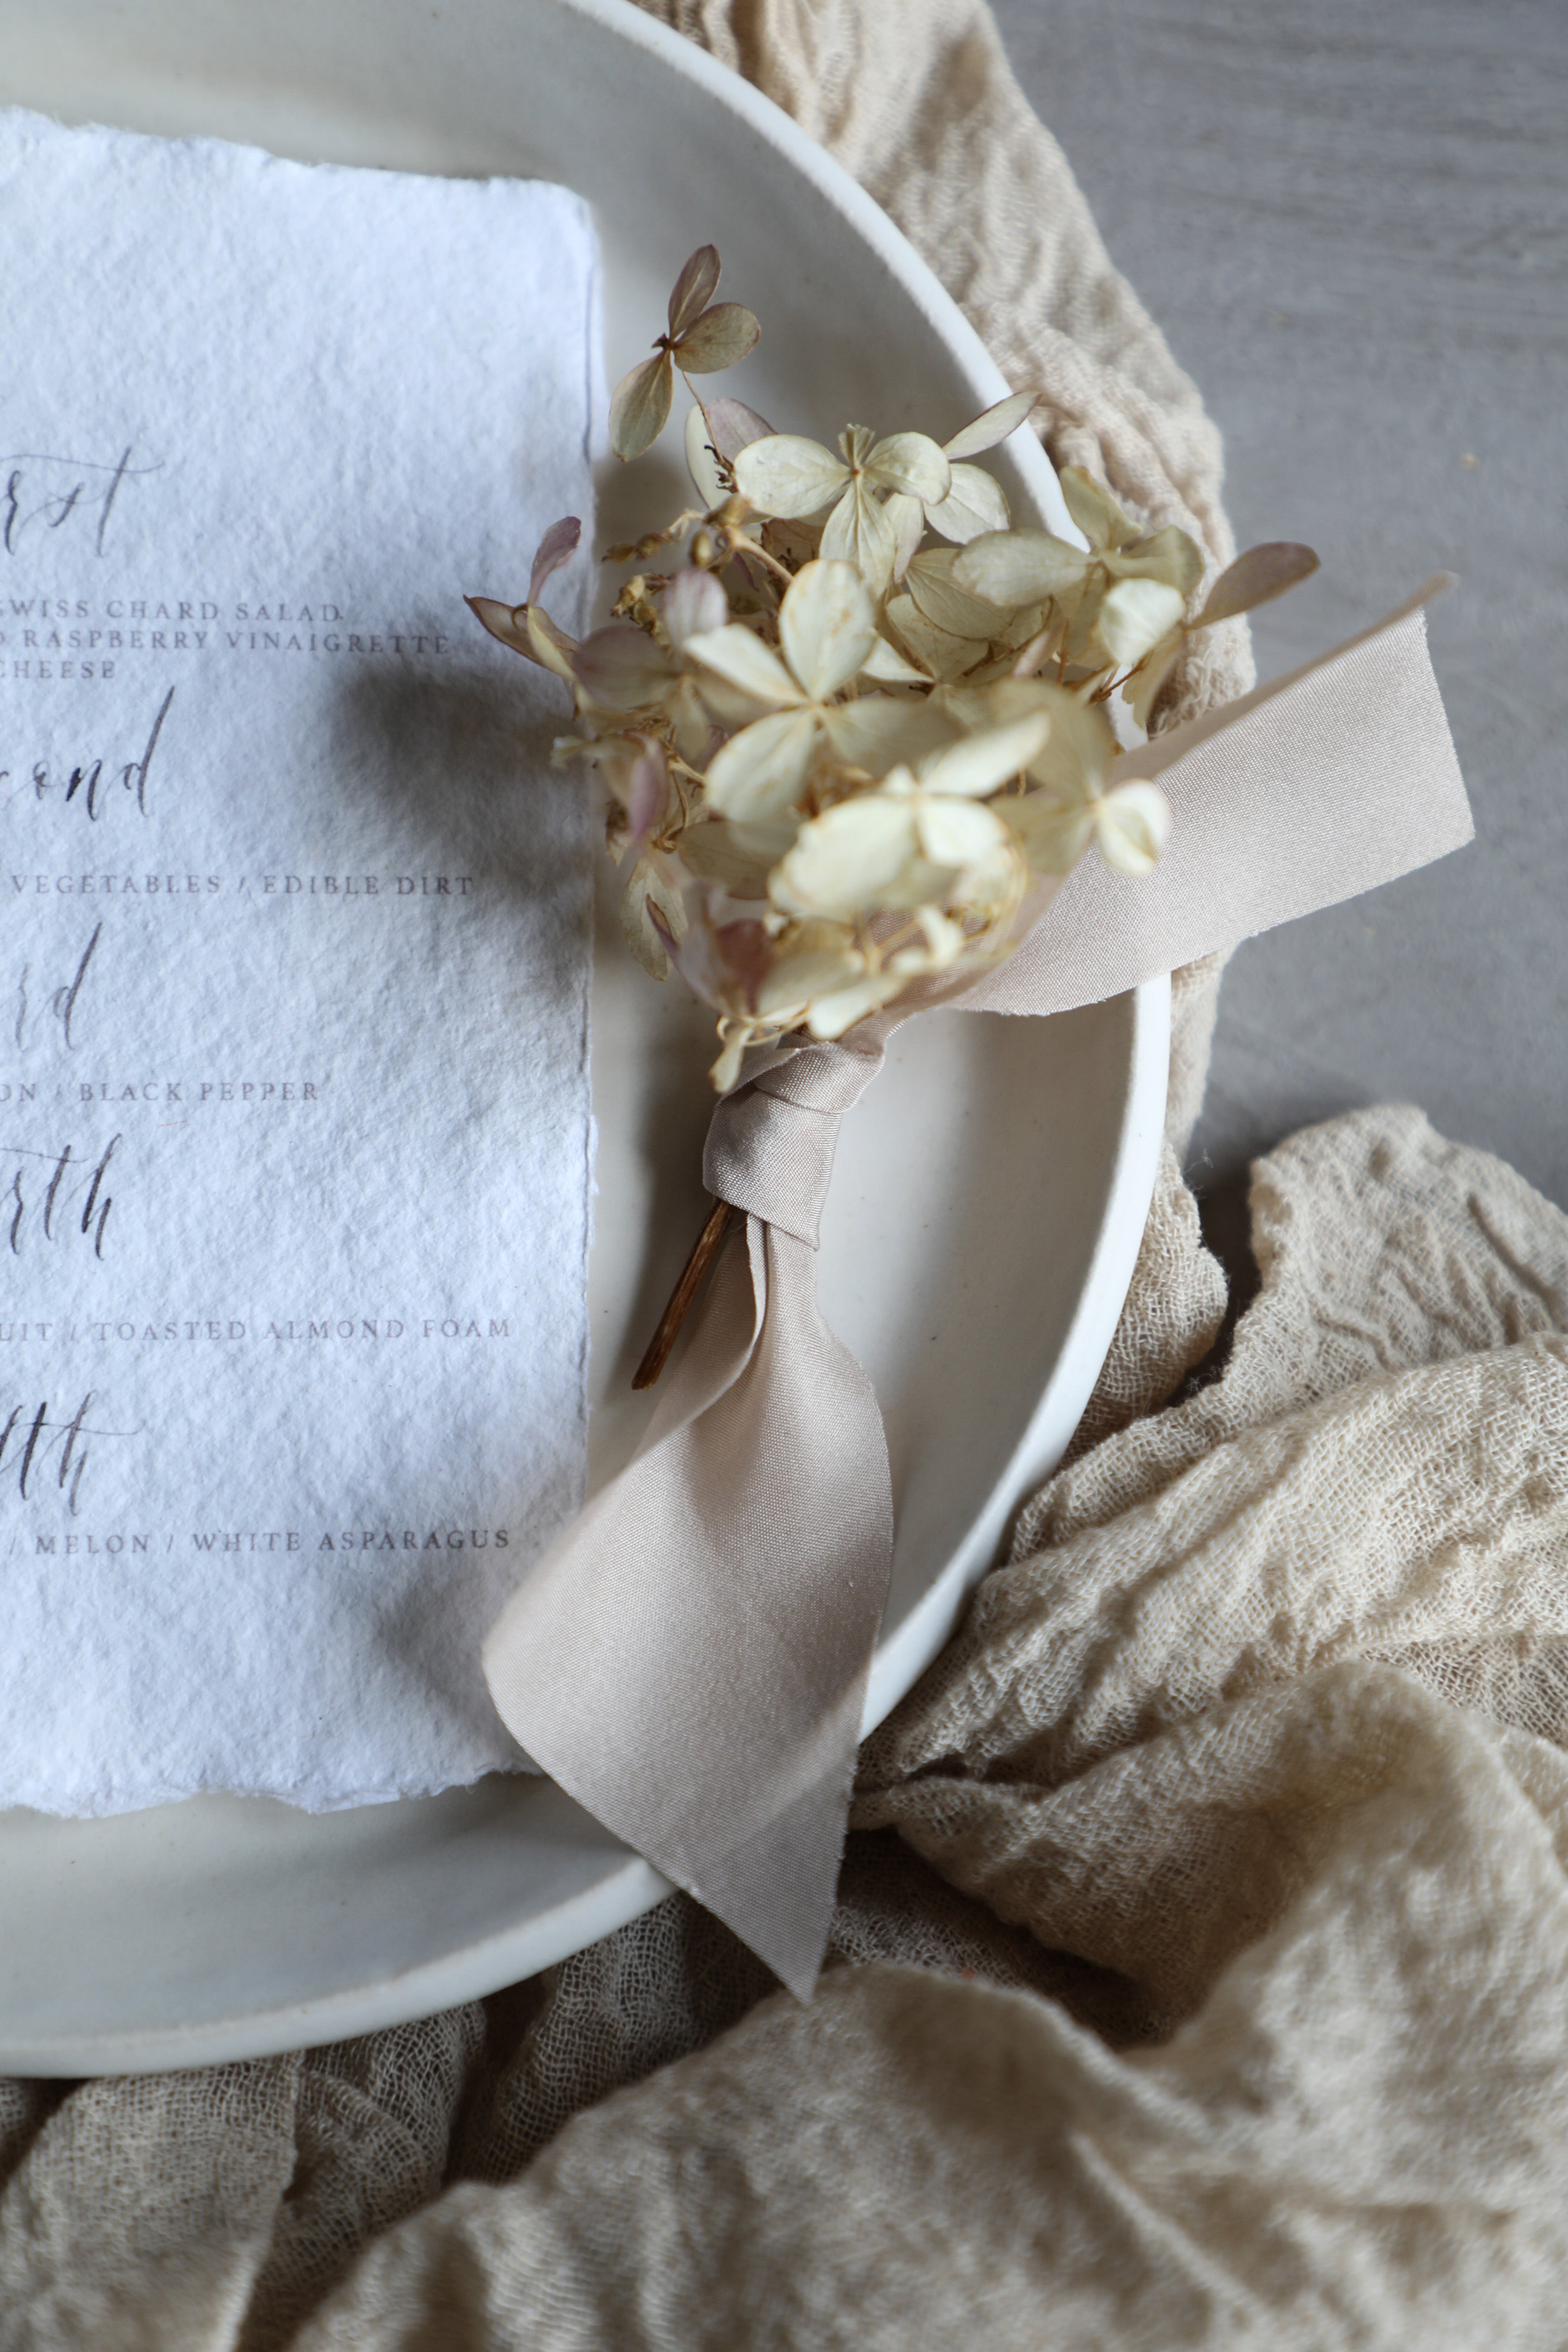 rst
SWISS CHARD SALAD
RASPBERRY VINAIGRETTE
CHEESE
cond
VEGETABLES / EDIBLE DIRT
rd
ON / BLACK PEPPER
rth
UIT / TOASTED ALMOND FOAM
fth
/ MELON / WHITE ASPARAGUS